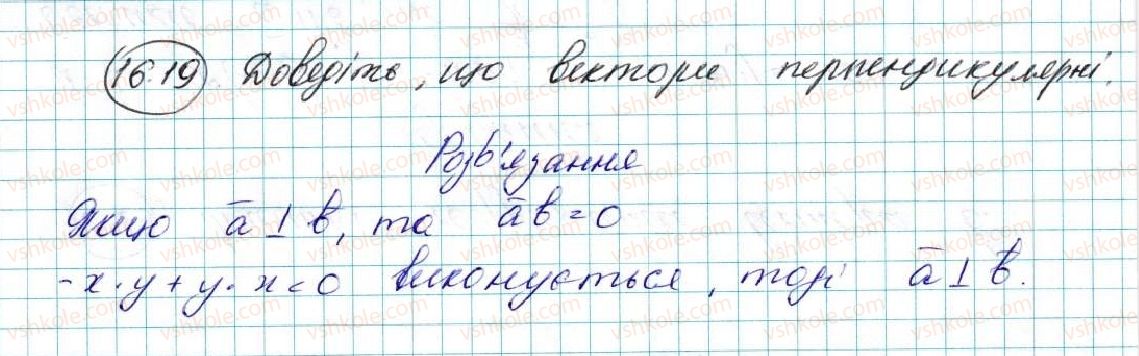 16.19 Доведіть, що вектори перпендикулярні.
Розв'язання
Якщо a̅ ⊥ b̅, то a̅b̅ = 0
-x·y + y·x = 0 виконується, тоді a̅ ⊥ b̅.